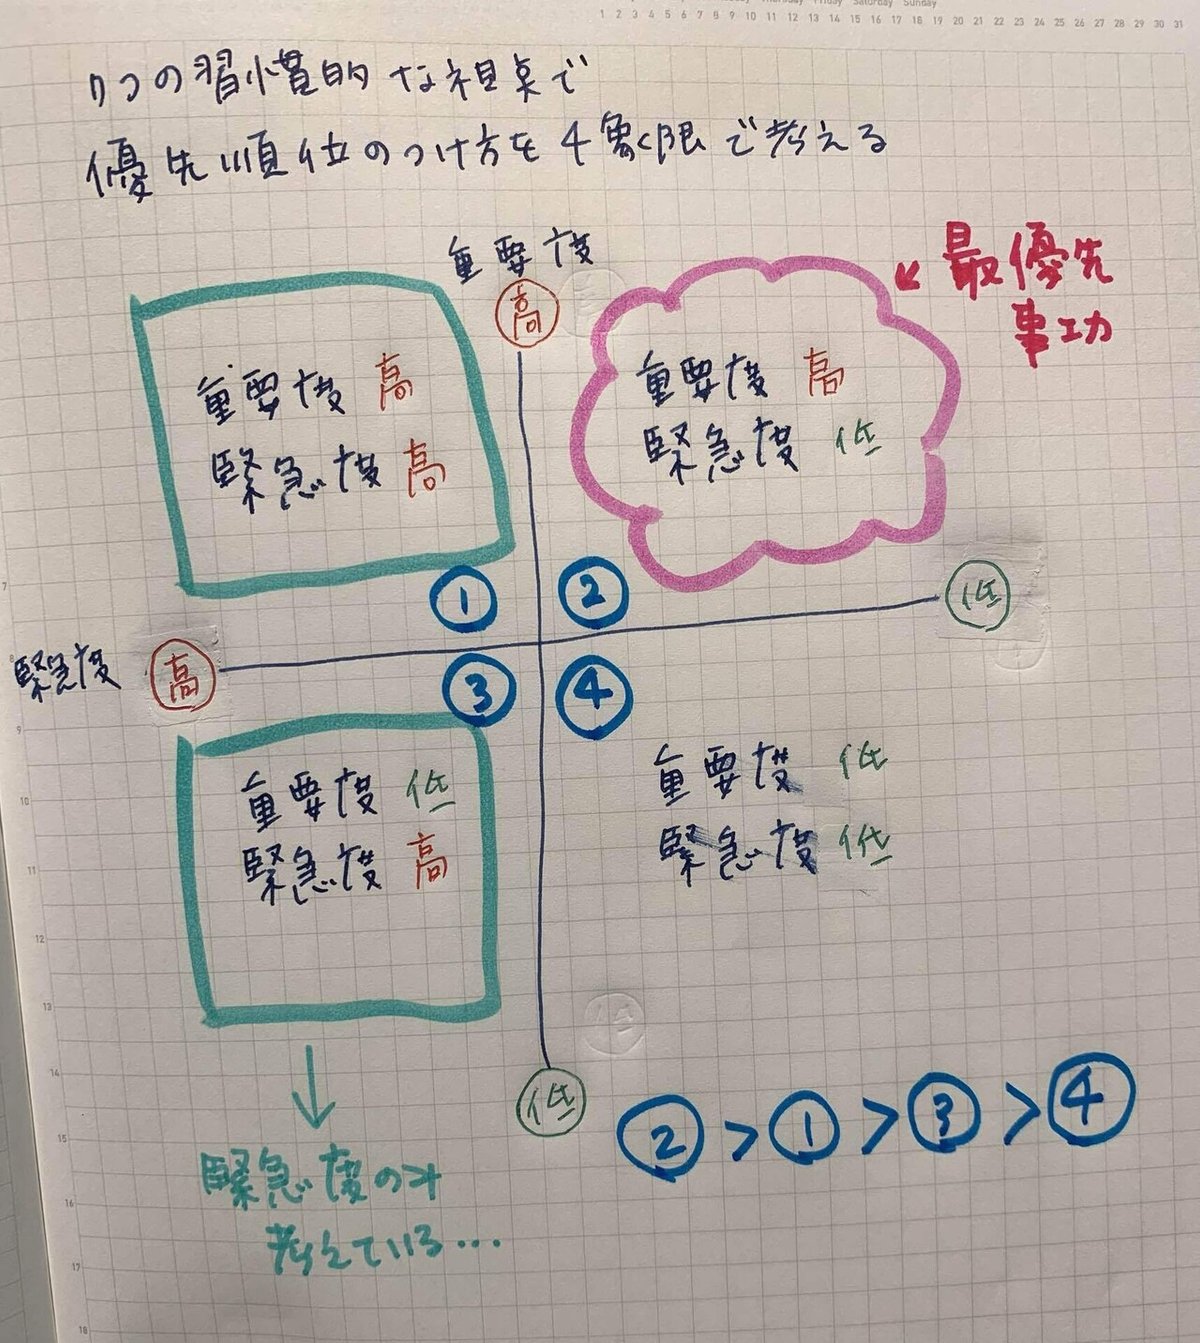 Thursday Friday Saturday Sunday
1 2 3 4 5 6 7 8 9 10 11 12 13 14 15 16 17 18 19 20 21 22 23 24 25 26 27 28 29 30 31
7つの習慣的な視点で
優先順位のつけ方を4象限で考える
重要度
高
最優先
事項
重要度 高
緊急度 高
重要度 高
緊急度 低
① ②
低
緊急度 高
③ ④
重要度 低
緊急度 高
重要度 低
緊急度 低
低
② > ① > ③ > ④
緊急度のみ
考えている...
7
8
9
10
11
12
13
14
15
16
17
18